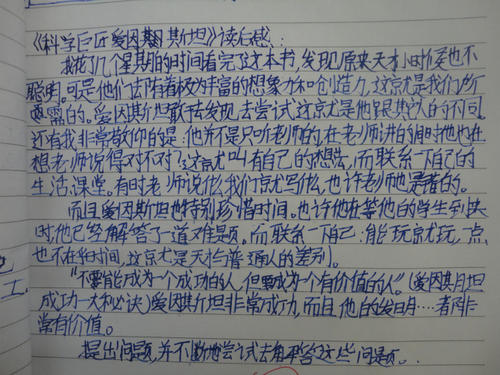 《科学巨匠爱因斯坦》读后感:
我花了几个星期的时间看完了这本书,发现原来天才小时候也不
聪明。可是他们去拥有着极为丰富的想象力和创造力,这就是我们所
需的。爱因斯坦敢于去发现去尝试这就是他跟其他人的不同
还有我非常敬仰的是:他并不是只听老师的,在老师讲的同时他也在
想老师说得对不对?这就叫有自己的想法,而联系一下自己的
生活,课堂。有时老师说什么,我们就写什么,也许老师也是错的。
而且爱因斯坦也特别珍惜时间。也许他在等他的学生到块
时,他已经解答了一道难题。而联系一下自己:能玩就玩,一点
也不在乎时间,这就是天才与普通人的差别。
“不要能成为一个成功的人,但要成为一个有价值的人”。(爱因斯坦
成功一大秘诀)爱因斯坦非常成功,而且他的发明····都非
常有价值。
提出问题,并不断地尝试去解答这些问题。